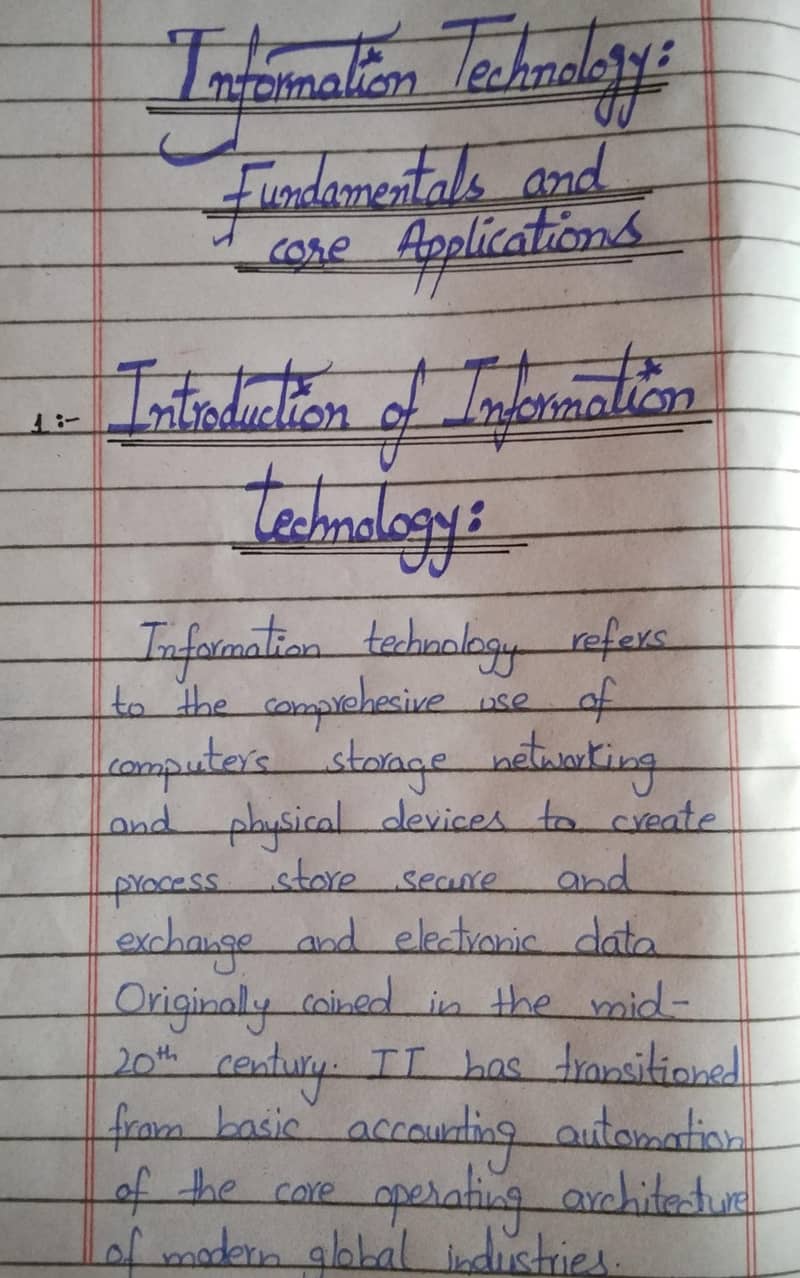 Information Technology:
Fundamentals and
core Applications
1:- Introduction of Information
technology:
Information technology refers
to the comprehesive use of
computers storage networking
and physical devices to create
process store secure and
exchange and electronic data
Originally coined in the mid-
20th century. IT has transitioned
from basic accounting automation
of the core operating architecture
of modern global industries.